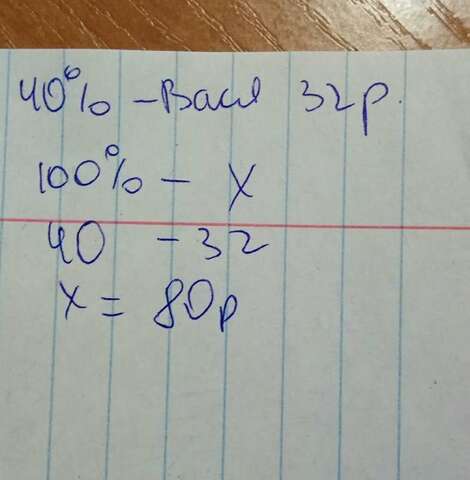 40% - Вася 32р.
100% - х
40 - 32
х = 80р